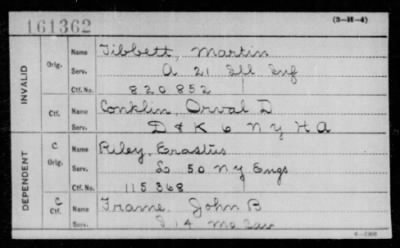 161362
(3-H-4)
INVALID
Orig. Name Tibbett, Martin
Serv. A 21 Ill Inf
Ctf. No. 820852
Ctf. Name Conklin, Orval D
Serv. D & K 6 N Y H A
DEPENDENT
C Orig. Name Riley, Erastus
Serv. L 50 N Y Engs
Ctf. No. 115368
C Ctf. Name Frame, John B
Serv. 14 Mo Cav